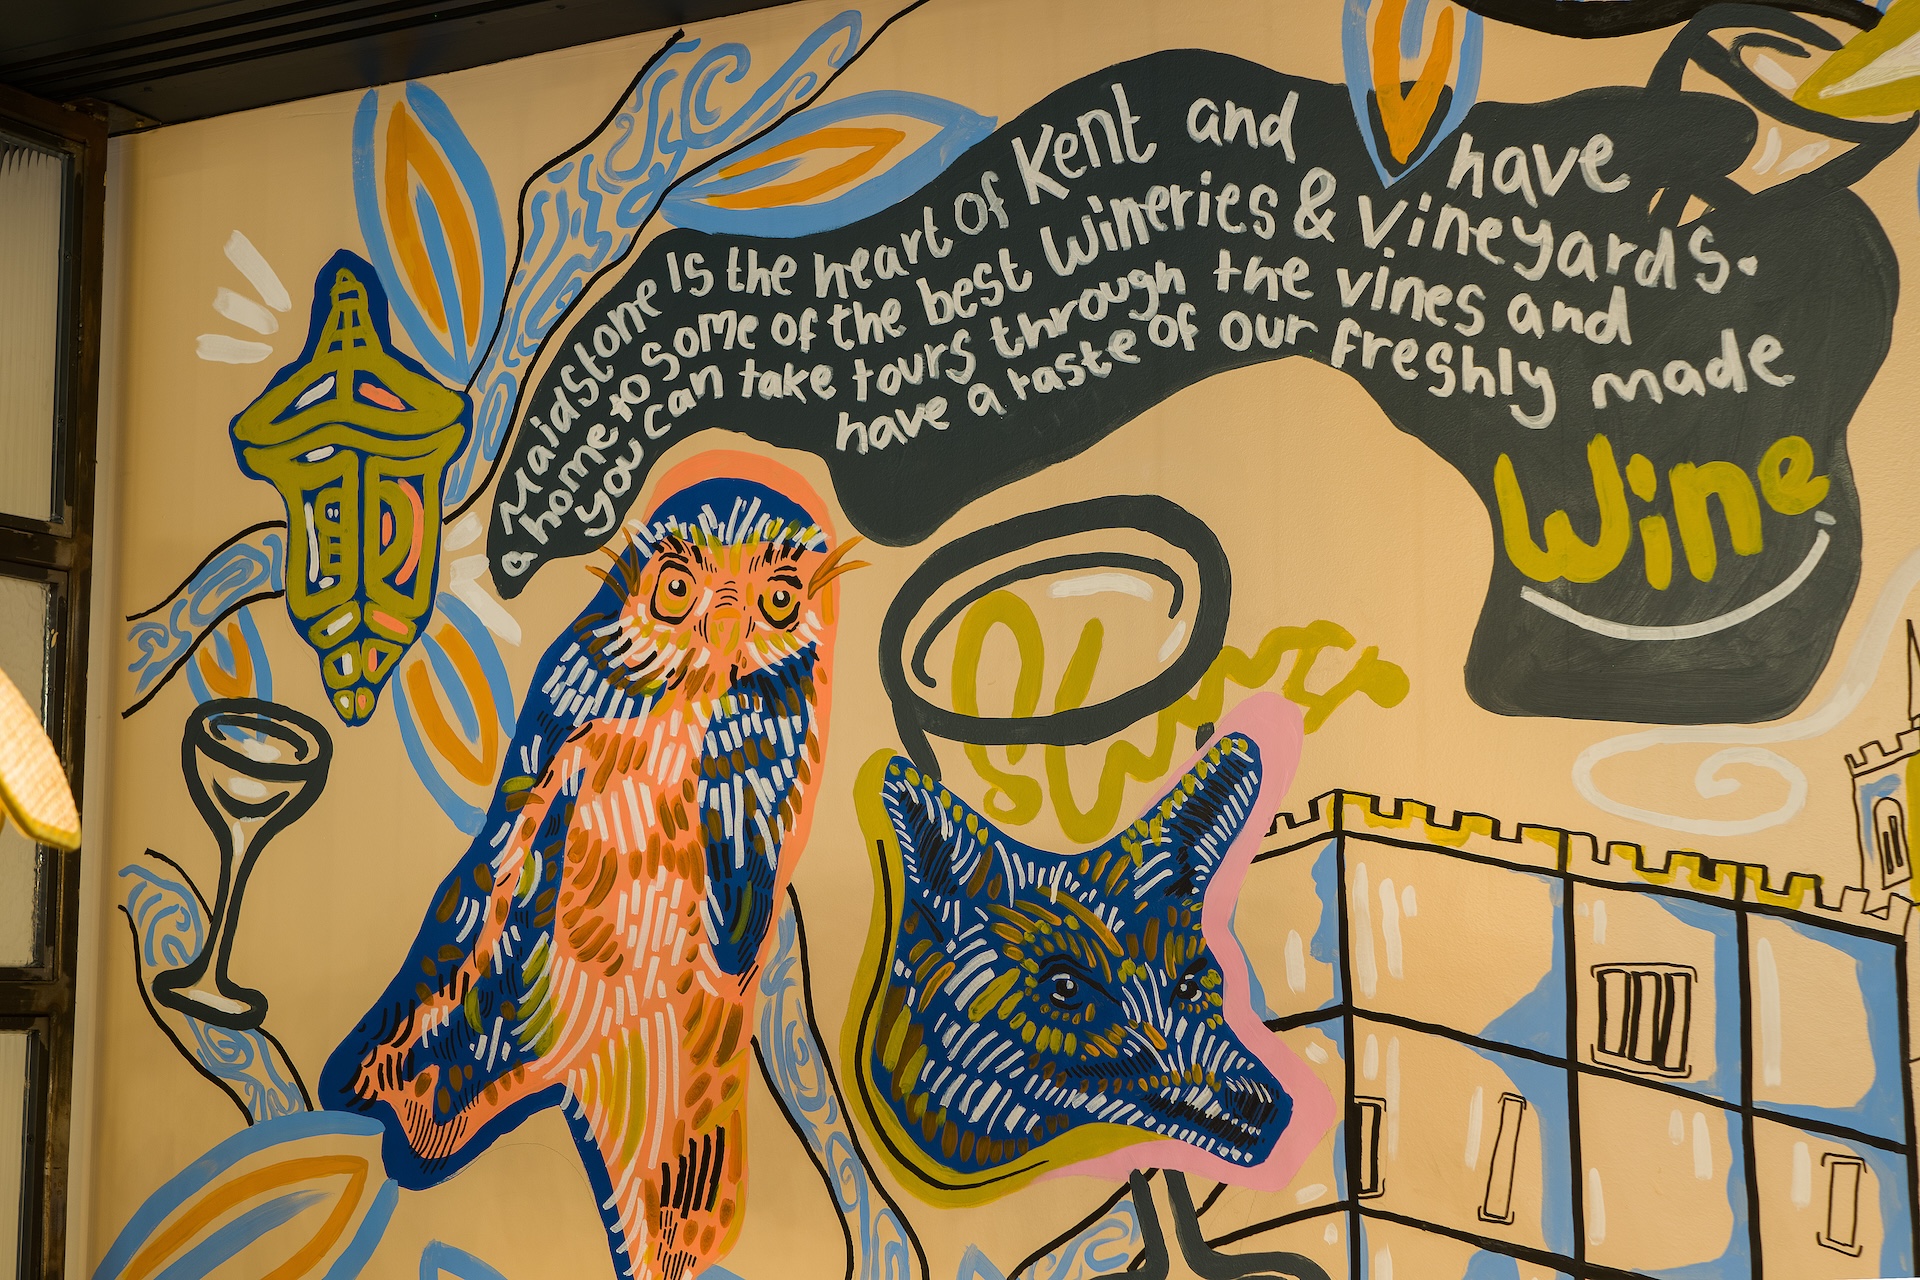 Maidstone is the heart of Kent and have
a home to some of the best wineries & vineyards.
you can take tours through the vines and
have a taste of our freshly made
Wine